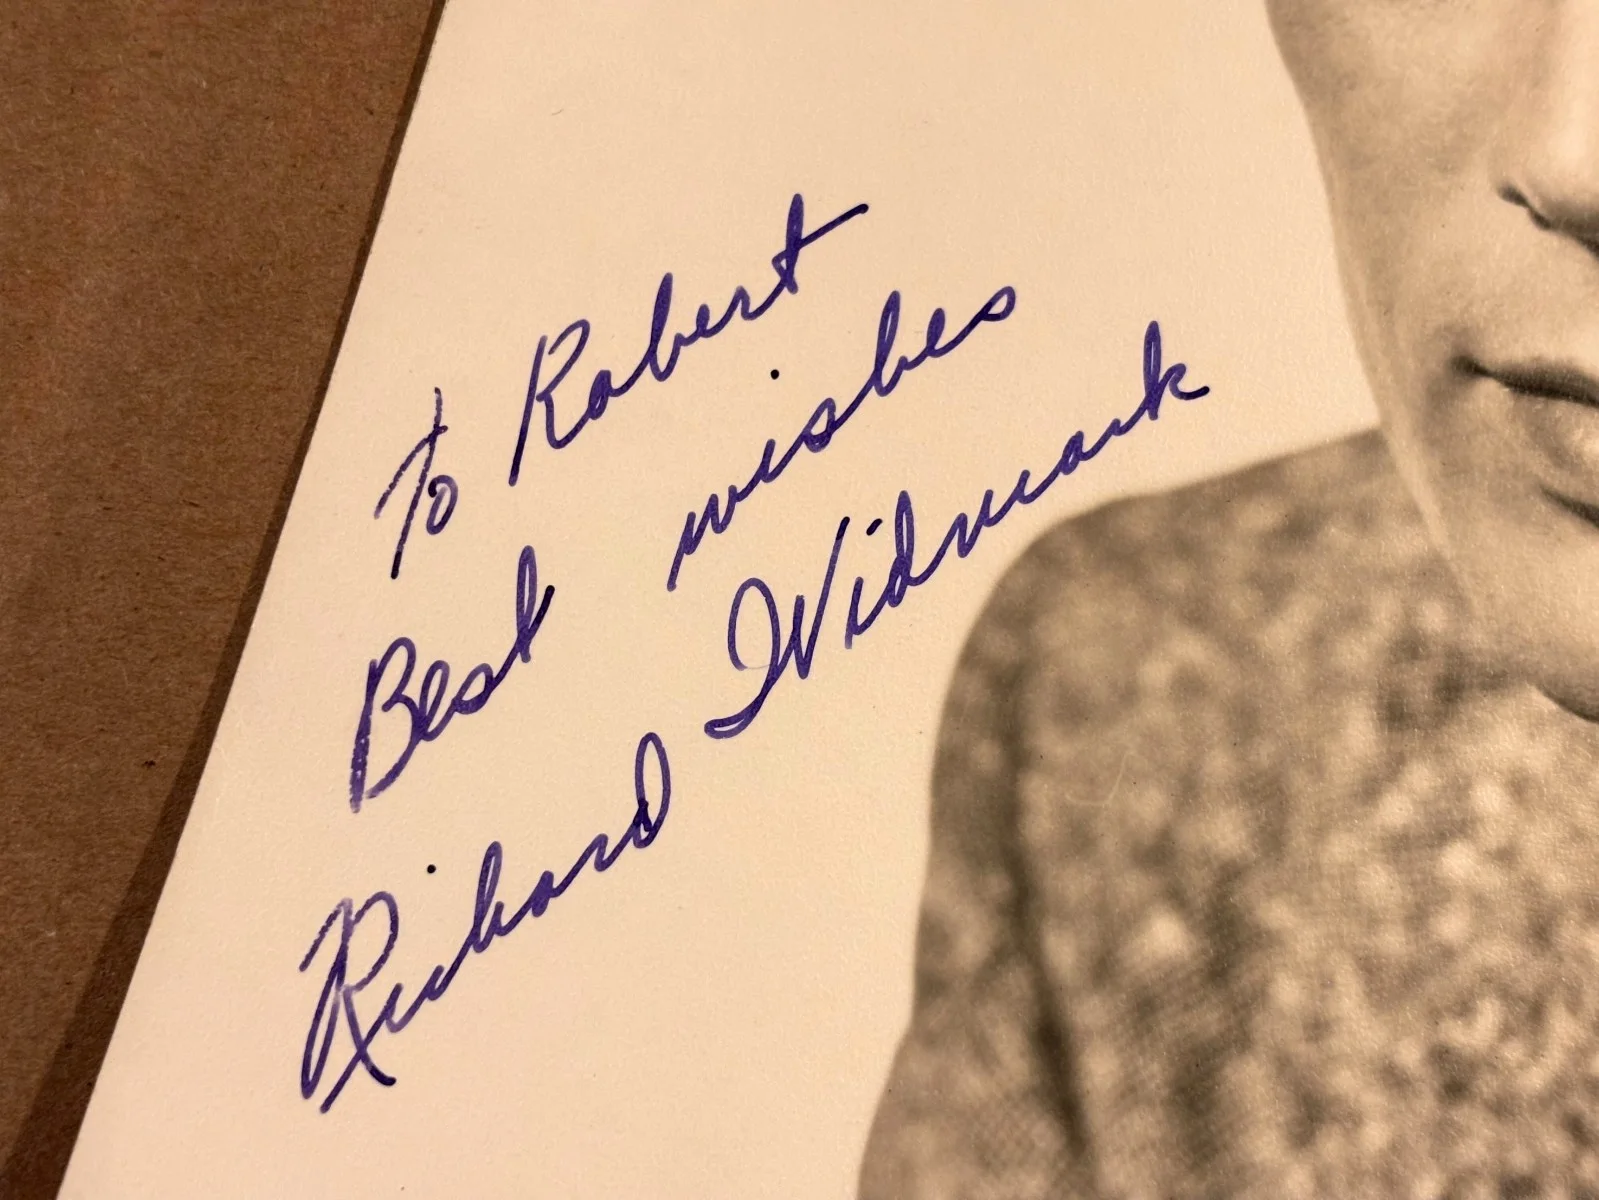 To Robert
Best wishes
Richard Widmark